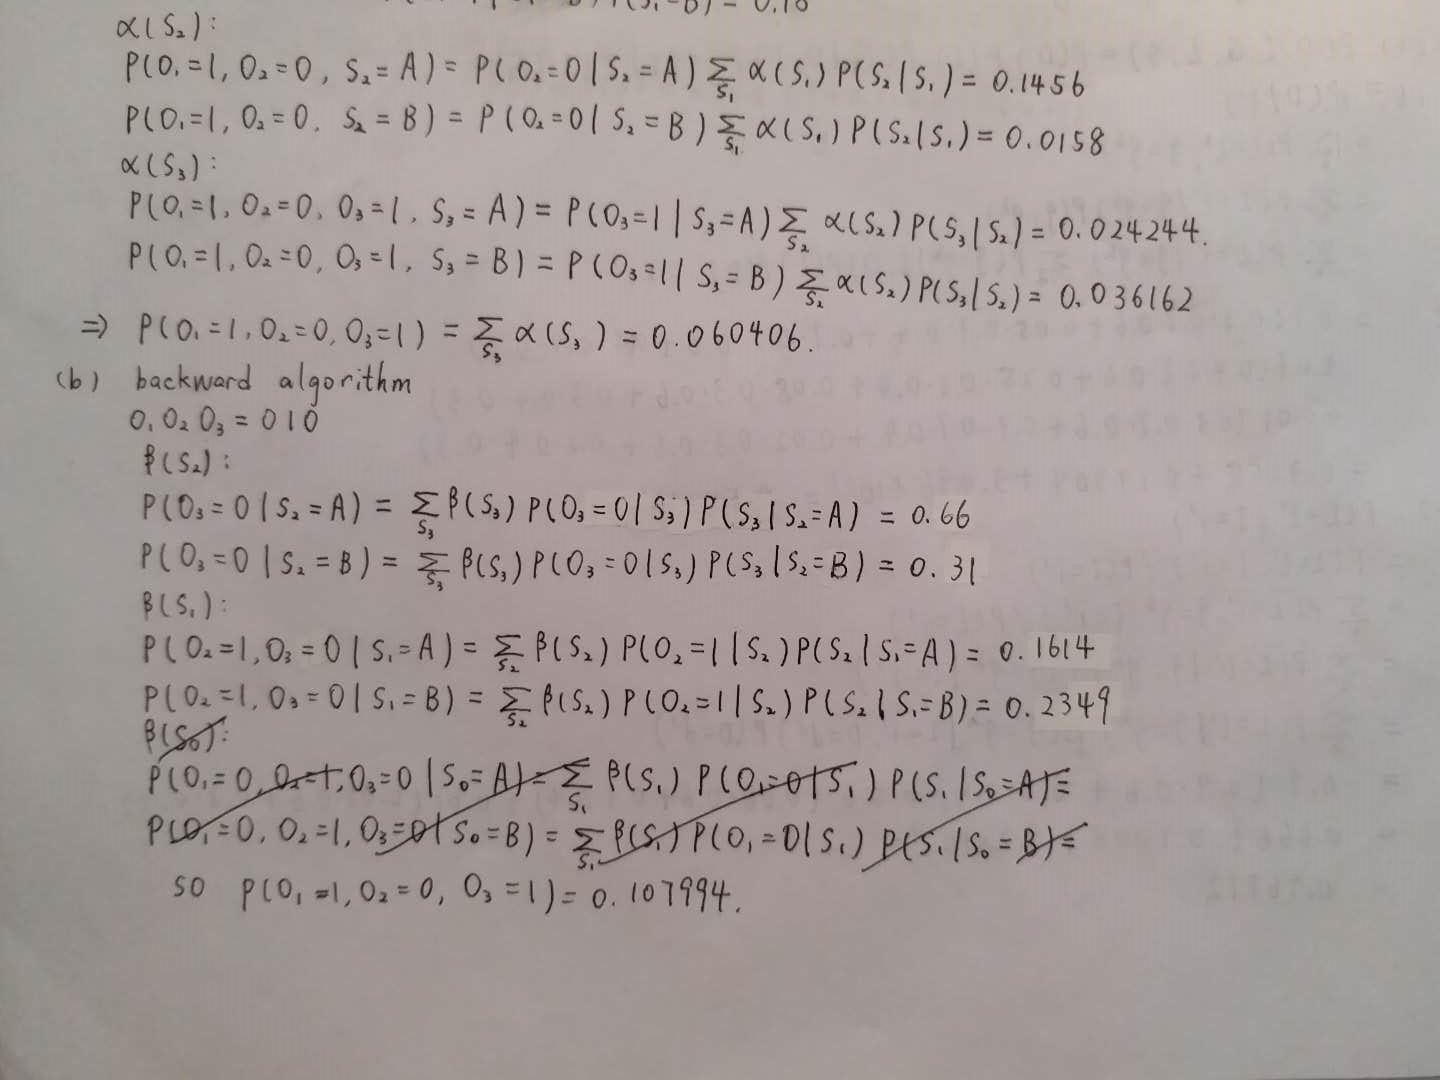 α(S₂):
P(O₁=1, O₂=0, S₂=A) = P(O₂=0|S₂=A) Σ_S₁ α(S₁) P(S₂|S₁) = 0.1456
P(O₁=1, O₂=0, S₂=B) = P(O₂=0|S₂=B) Σ_S₁ α(S₁) P(S₂|S₁) = 0.0158
α(S₃):
P(O₁=1, O₂=0, O₃=1, S₃=A) = P(O₃=1|S₃=A) Σ_S₂ α(S₂) P(S₃|S₂) = 0.024244.
P(O₁=1, O₂=0, O₃=1, S₃=B) = P(O₃=1|S₃=B) Σ_S₂ α(S₂) P(S₃|S₂) = 0.036162
⇒ P(O₁=1, O₂=0, O₃=1) = Σ_S₃ α(S₃) = 0.060406.
(b) backward algorithm
O₁O₂O₃=010
β(S₂):
P(O₃=0|S₂=A) = Σ_S₃ β(S₃) P(O₃=0|S₃) P(S₃|S₂=A) = 0.66
P(O₃=0|S₂=B) = Σ_S₃ β(S₃) P(O₃=0|S₃) P(S₃|S₂=B) = 0.31
β(S₁):
P(O₂=1, O₃=0|S₁=A) = Σ_S₂ β(S₂) P(O₂=1|S₂) P(S₂|S₁=A) = 0.1614
P(O₂=1, O₃=0|S₁=B) = Σ_S₂ β(S₂) P(O₂=1|S₂) P(S₂|S₁=B) = 0.2349
β(S₀):
P(O₁=0, O₂=1, O₃=0|S₀=A) = Σ_S₁ β(S₁) P(O₁=0|S₁) P(S₁|S₀=A) =
P(O₁=0, O₂=1, O₃=0|S₀=B) = Σ_S₁ β(S₁) P(O₁=0|S₁) P(S₁|S₀=B) =
so P(O₁=1, O₂=0, O₃=1) = 0.107994.